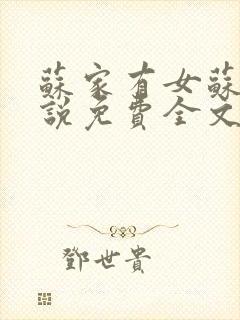 蘇家有女蘇
說免費全文
鄧世貴